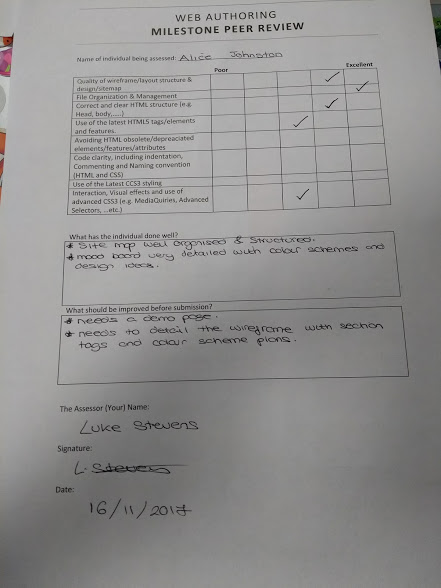 WEB AUTHORING
MILESTONE PEER REVIEW
Name of individual being assessed: Alice Johnston
Poor Excellent
Quality of wireframe/layout structure &
design/sitemap
File Organization & Management
Correct and clear HTML structure (e.g.
Head, body,.....)
Use of the latest HTML5 tags/elements
and features.
Avoiding HTML obsolete/depreaciated
elements/features/attributes
Code clarity, including indentation,
Commenting and Naming convention
(HTML and CSS)
Use of the Latest CCS3 styling
Interaction, Visual effects and use of
advanced CSS3 (e.g. MediaQuiries, Advanced
Selectors, ...etc.)
What has the individual done well?
* Site map well organised & Structured.
* mood board very detailed with colour schemes and
design ideas.
What should be improved before submission?
* needs a demo page.
* needs to detail the wireframe with section
tags and colour scheme plans.
The Assessor (Your) Name:
Luke Stevens
Signature:
L. Stevens
Date:
16/11/2017